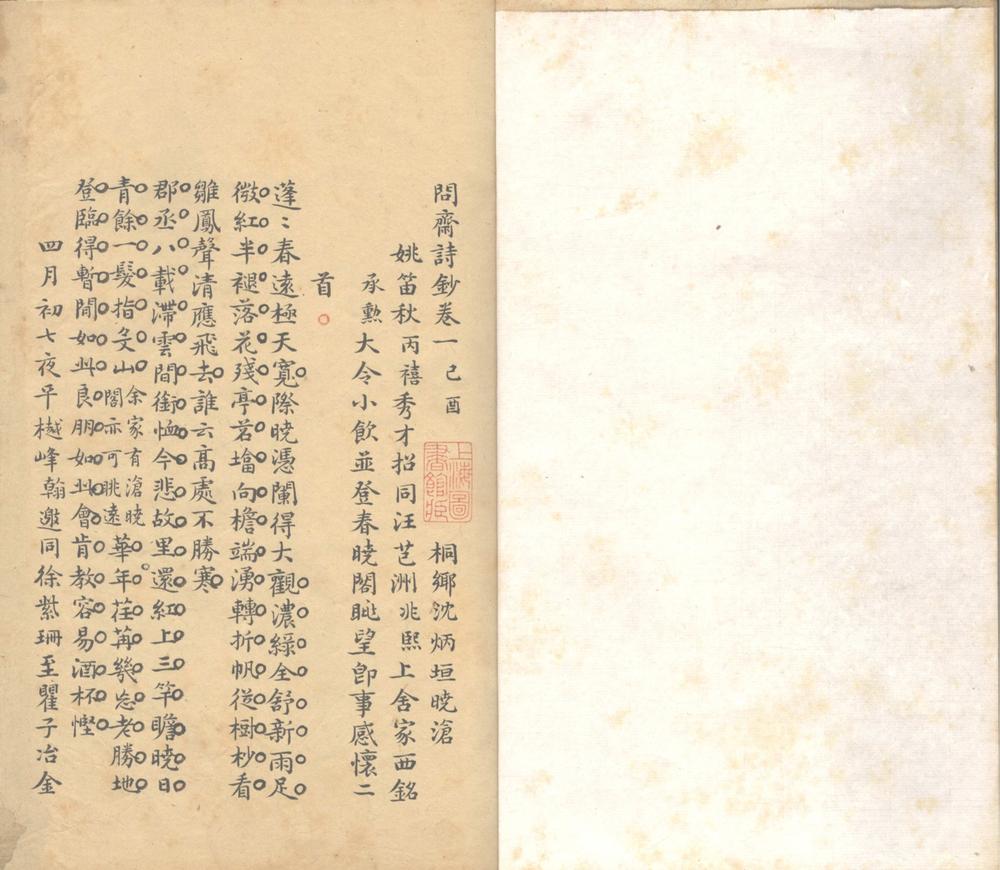 問齋詩鈔卷一 己酉 桐鄉沈炳垣曉滄
上海圖書館藏
姚笛秋丙禧秀才招同汪芑洲兆熙上舍家西銘
承勲大令小飲並登春曉閣眺望即事感懷二
首
蓬〻春遠極天寬際曉憑闌得大觀濃綠全舒新雨足
微紅半褪落花殘亭若墖向檐端湧轉折帆從樹杪看
雛鳳聲清應飛去誰云高處不勝寒
郡丞八載滯雲間銜恤今悲故里還紅上三竿瞻曉日
青餘一髮指文山余家有滄曉閣亦可眺遠華年荏苒幾忘老勝地
登臨得暫閒如此良朋如此會肯教容易酒杯慳
四月初七夜平樾峰翰邀同徐紫珊至瞿子冶金